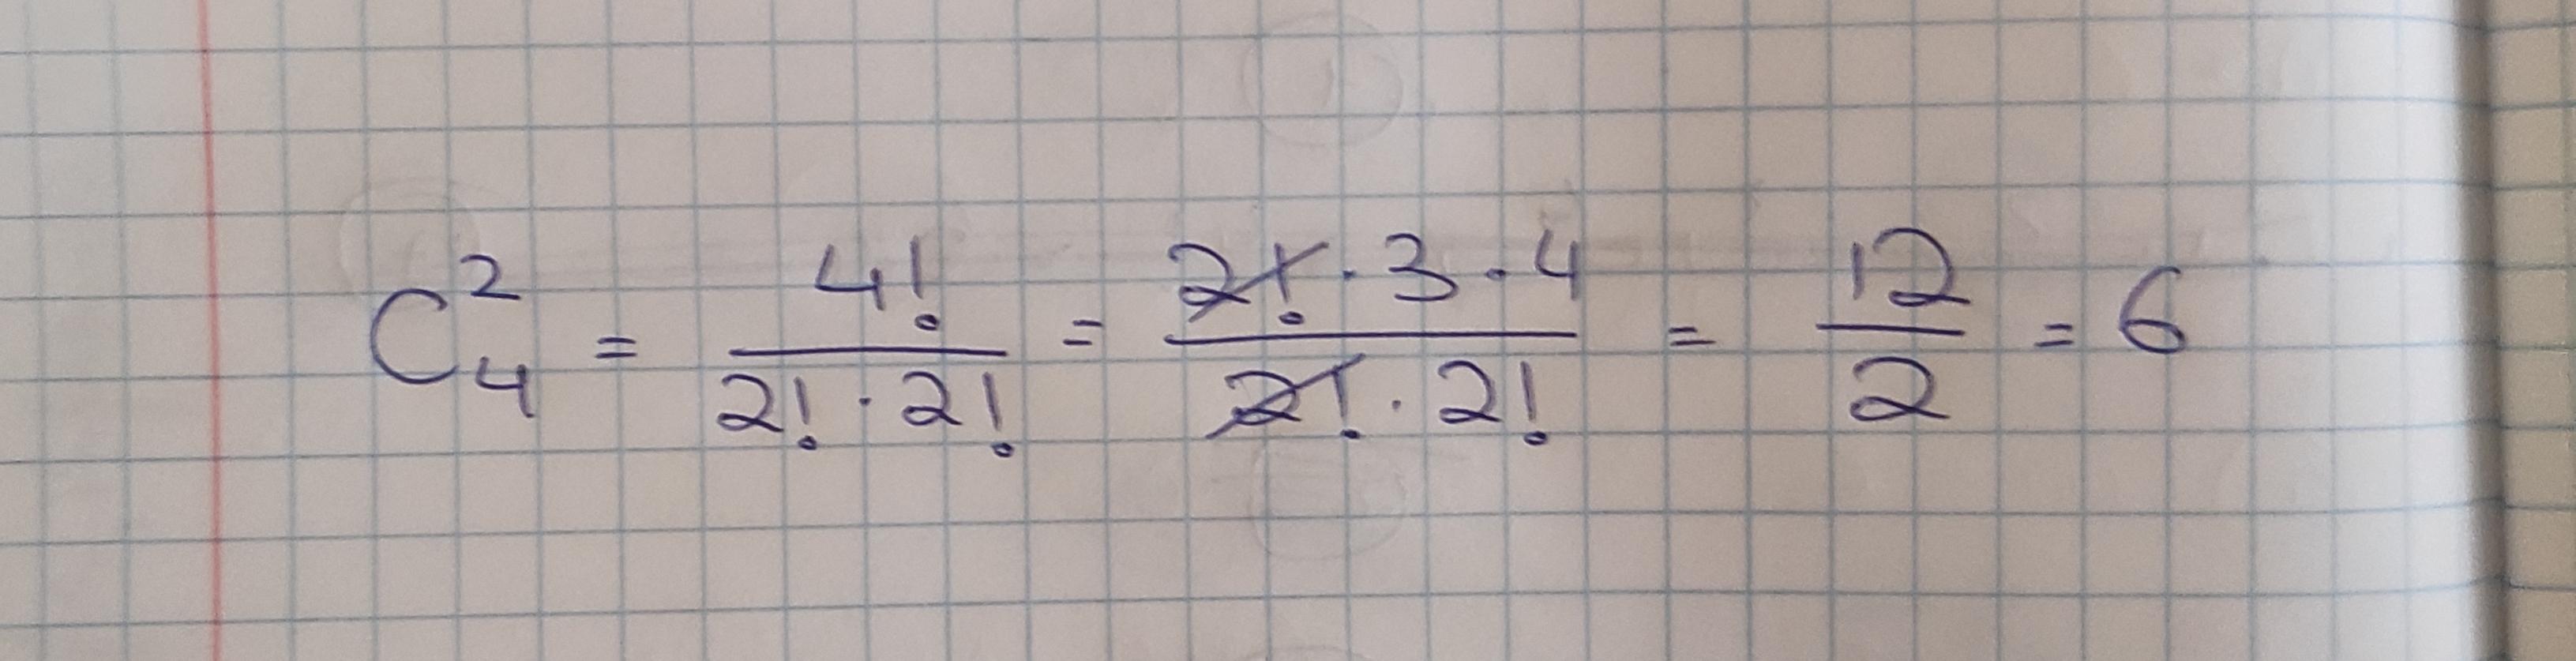 C₄² = 4! / (2! · 2!) = (2! · 3 · 4) / (2! · 2!) = 12 / 2 = 6